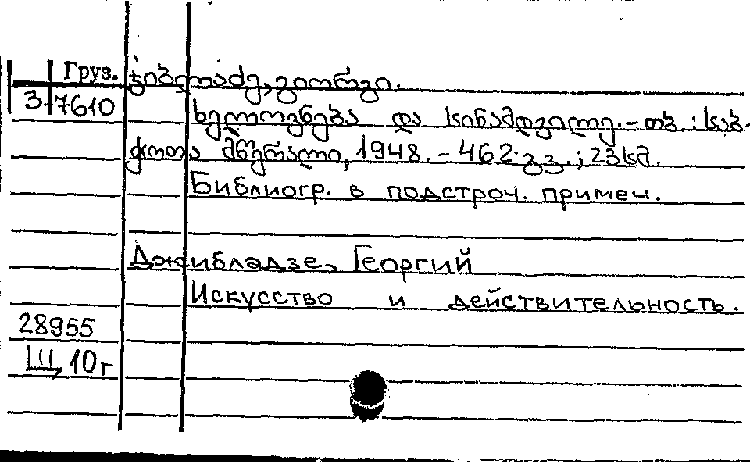 Груз. ჯიბლაძე, გიორგი.
3.7610
ხელოვნება და სინამდვილე. – თბ. : საბ-
ჭოთა მწერალი, 1948. – 462 გვ. ; 23 სმ.
Библиогр. в подстроч. примеч.
Джибладзе, Георгий
Искусство и действительность.
28955
Щ, 10г